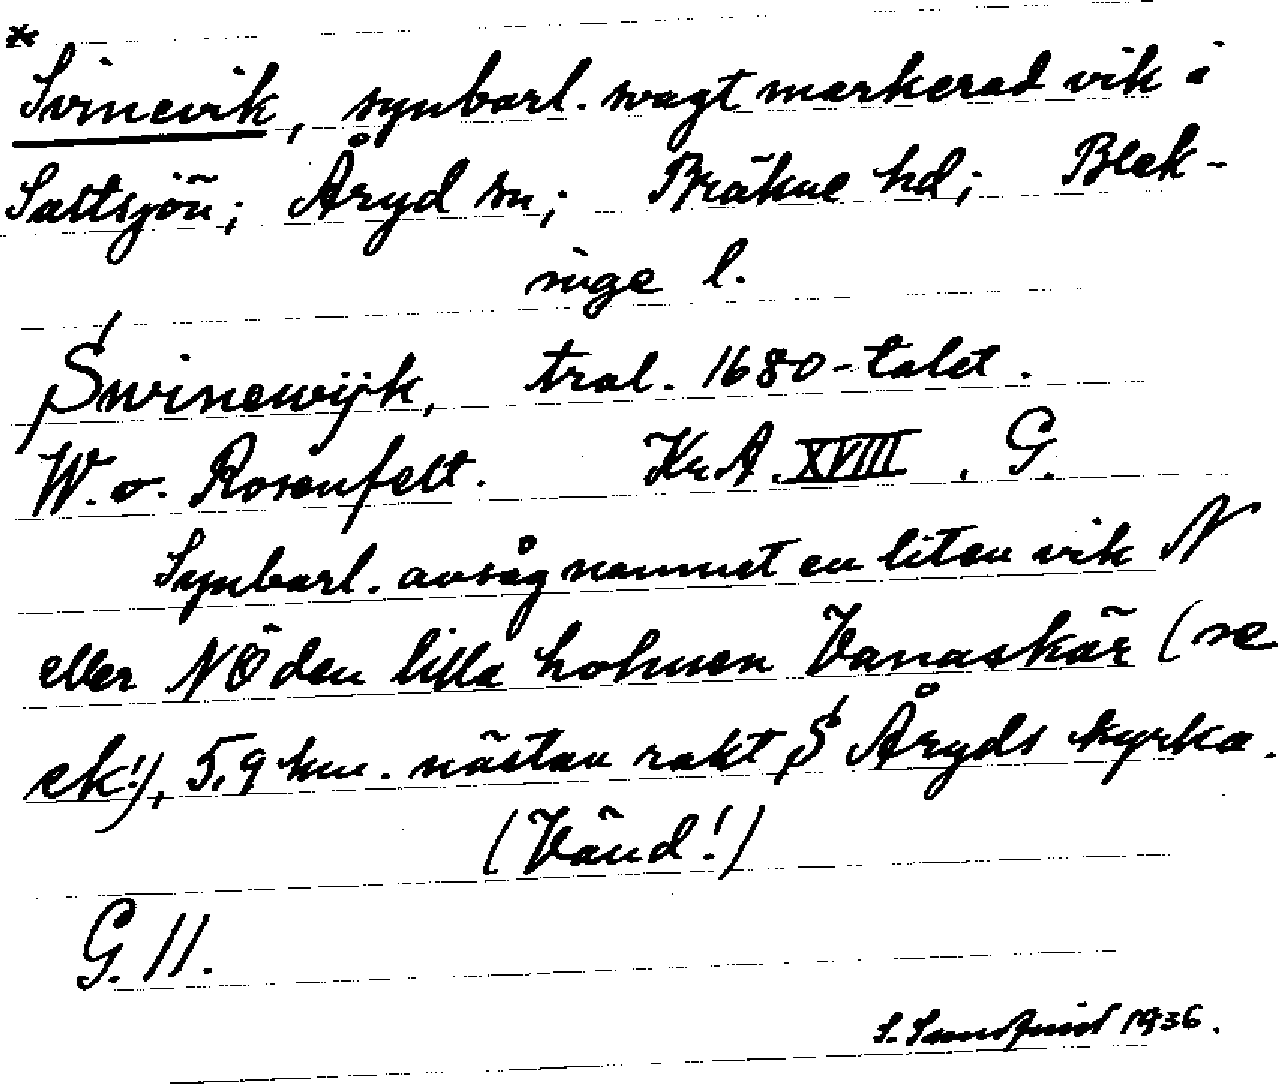 *
Svinevik, synbarl. svagt markerad vik i
Saltsjön; Åryd sn; Bräkne hd; Blek-
inge l.
Swinewijk, trol. 1680-talet.
W. v. Rosenfelt. Kr.A. XVIII. G.
Synbarl. avsåg namnet en liten vik N
eller NÖ den lilla holmen Vanaskär (se
ek!), 5,9 km. nästan rakt S Åryds kyrka.
(Vänd!)
G. 11.
S. 1936.